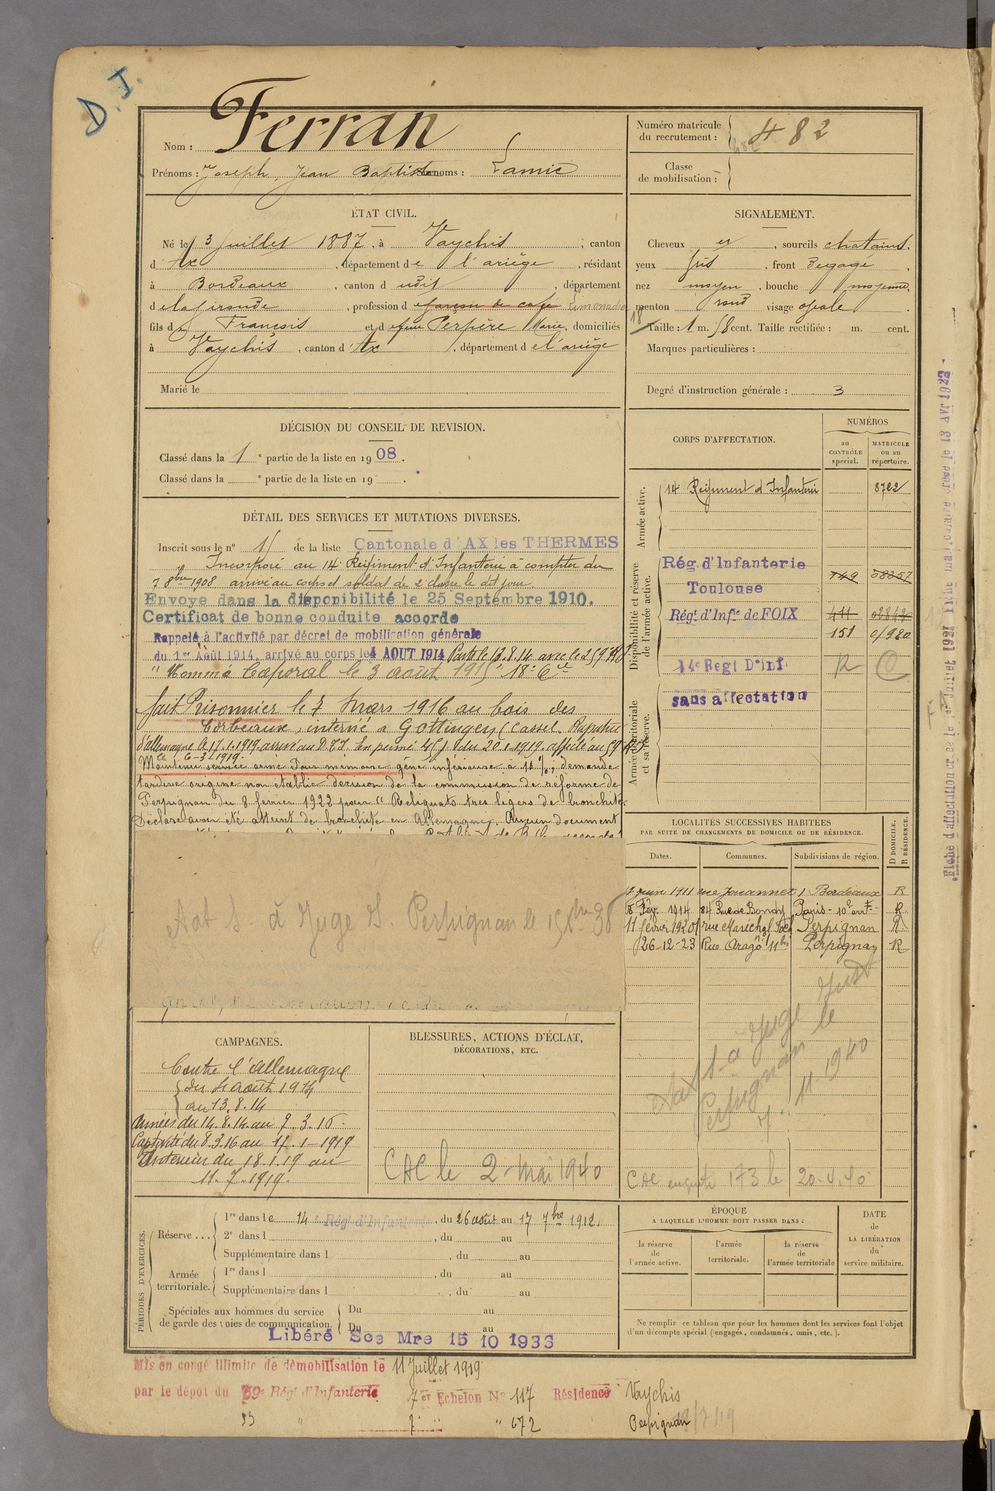 D. I.
Nom : Ferran
Prénoms : Joseph, Jean Baptiste Surnoms : Lamic
ÉTAT CIVIL.
Né le 3 juillet 1887, à Vaychis, canton
d'Ax, département de l'ariège, résidant
à Bordeaux, canton d udit, département
d elagironde, profession d e garçon de café Limonadier
fils de François et de feue Perpère Marie, domiciliés
à Vaychis, canton d'Ax, département de l'ariège
Marié le
DÉCISION DU CONSEIL DE REVISION.
Classé dans la 1e partie de la liste en 1908.
Classé dans la e partie de la liste en 19 .
DÉTAIL DES SERVICES ET MUTATIONS DIVERSES.
Inscrit sous le n° 15 de la liste Cantonale d'AX les THERMES
Incorporé au 14e Régiment d'Infanterie à compter du
7 8bre 1908 arrivé au corps et soldat de 2e classe le dit jour
Envoyé dans la disponibilité le 25 Septembre 1910.
Certificat de bonne conduite accordé
Rappelé à l'activité par décret de mobilisation générale
du 1er Août 1914, arrivé au corps le 4 AOUT 1914 Parti le 13.8.14 avec le 259 RI
Nommé Caporal le 3 août 1915 18e Cie
fait Prisonnier le 7 Mars 1916 au bois des
Corbeaux, interné à Gottingen (Cassel) Rapatrié
d'allemagne le 17.1.1919 arrivé au D.T.I. En permé 45j du 20.1.1919. affecté au 59e RI
le 6-3-1919.
Maintenu service armé Pour mémoire gêne inférieure à 10%, demande
tardive origine non établie décision de la commission de réforme de
Perpignan du 8 fevrier 1922 pour "Reliquats tres légers de bronchite
Déclare avoir été atteint de bronchite en Allemagne. Aucun document
Aat S- à Juge P. Perpignan le 15 Xbre 38
CAMPAGNES.
Contre l'Allemagne
du 4 août 1914
au 13.8.14
Armées du 14.8.14 au 7.3.16.
Captivité du 8.3.16 au 17-1-1919
Intérieur du 18.1.19 au
11.7.1919.
BLESSURES, ACTIONS D'ÉCLAT,
DÉCORATIONS, ETC.
CAC le 2 mai 1940
PÉRIODES D'EXERCICES.
Réserve ...
1re dans le 14e Régt d'Infanterie, du 26 août au 17 7bre 1912.
2e dans l , du au
Supplémentaire dans l , du au
Armée territoriale.
1re dans l , du au
Supplémentaire dans l , du au
Spéciales aux hommes du service de garde des voies de communication.
Du au
Du au
Libéré Sce Mre 15 10 1933
Mis en congé illimité de démobilisation le 11 Juillet 1919
par le dépôt du 59e Régt d'Infanterie 7er Echelon N° 117 Résidence Vaychis
83 " 7 " " 672 Perpignan /7/19
Numéro matricule du recrutement : 482
Classe de mobilisation :
SIGNALEMENT.
Cheveux et, sourcils chatains.
yeux gris, front dégagé
nez moyen, bouche moyenne
menton rond visage ovale.
Taille : 1 m. 58 cent. Taille rectifiée : m. cent.
Marques particulières :
Degré d'instruction générale : 3
CORPS D'AFFECTATION.
NUMÉROS
au CONTRÔLE spécial.
MATRICULE ou au répertoire.
Armée active.
14e Régiment d'Infanterie 8722
Disponibilité et réserve de l'armée active.
Rég. d'Infanterie
Toulouse 749 08857
Régt. d'Infie de FOIX 411
151 01980
14e Regt D'inf R
Armée territoriale et sa réserve.
sans affectation
LOCALITÉS SUCCESSIVES HABITÉES
PAR SUITE DE CHANGEMENTS DE DOMICILE OU DE RÉSIDENCE.
Dates. Communes. Subdivisions de région. D DOMICILE. R RÉSIDENCE.
juin 1911 rue Jouannet 1 Bordeaux R
Fév. 1914 84 Rue de Bondy Paris - 10e arrt - R
11 février 1920 rue Maréchal Foch Perpignan R
26-12-23 Rue Arago 11bis Perpignan R
Aat S- à Juge Just
Perpignan le
7-11-1940
CAC enquête 173 le 20.4.40
ÉPOQUE
A LAQUELLE L'HOMME DOIT PASSER DANS :
la réserve de l'armée active.
l'armée territoriale.
la réserve de l'armée territoriale
DATE de LA LIBÉRATION du service militaire.
Ne remplir ce tableau que pour les hommes dont les services font l'objet
d'un décompte spécial (engagés, condamnés, omis, etc.).